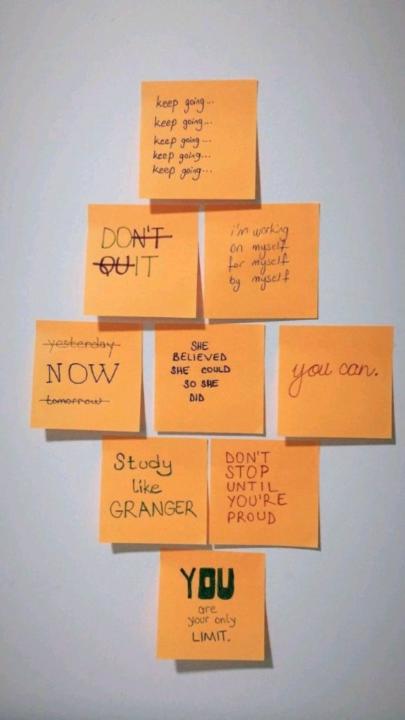 keep going...
keep going...
keep going...
keep going...
keep going...
DON'T
QUIT
i'm working
on myself
for myself
by myself
yesterday
NOW
tomorrow
SHE
BELIEVED
SHE COULD
SO SHE
DID
you can.
Study
like
GRANGER
DON'T
STOP
UNTIL
YOU'RE
PROUD
YOU
are
your only
LIMIT.